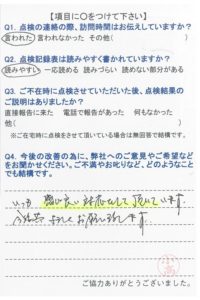 【項目に○をつけて下さい】
Q1. 点検の連絡の際、訪問時間はお伝えしていますか?
言われた 言われなかった その他( )
Q2. 点検記録表は読みやすく書かれていますか?
読みやすい 一応読める 読みづらい 読めない部分がある
Q3. ご不在時に点検させていただいた後、点検結果の
ご説明はありましたか?
直接報告に来た 電話で報告があった 何もなかった
他( )
※ご在宅時に点検をさせて頂いている場合は無回答で結構です。
Q4. 今後の改善の為に、弊社へのご意見やご希望など
をお聞かせください。ご不満やお叱りなど、どのようなこと
でも結構です。
いつも 良い対応をして頂いています。
今後共 よろしくお願いします
ご協力ありがとうございました。